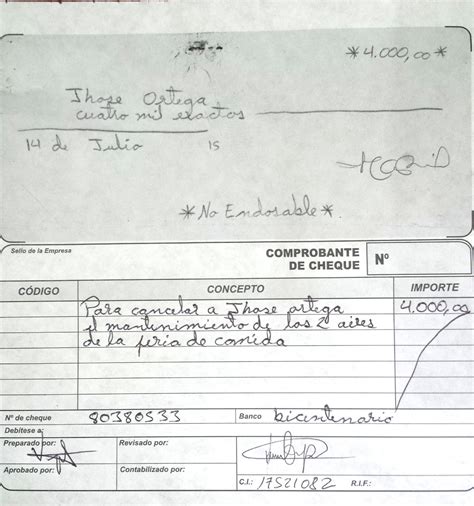 *4.000,00*
Jhose Ortega
cuatro mil exactos
14 de Julio 15
*No Endosable*.
Sello de la Empresa
COMPROBANTE
DE CHEQUE
Nº
CÓDIGO CONCEPTO IMPORTE
Para cancelar a Jhose ortega 4.000,00
el mantenimiento de los 2 aires
de la feria de comida
Nº de cheque 80380533 Banco bicentenario
Debítese a:
Preparado por: Revisado por:
Aprobado por: Contabilizado por:
C.I.: 17521082 R.I.F.: